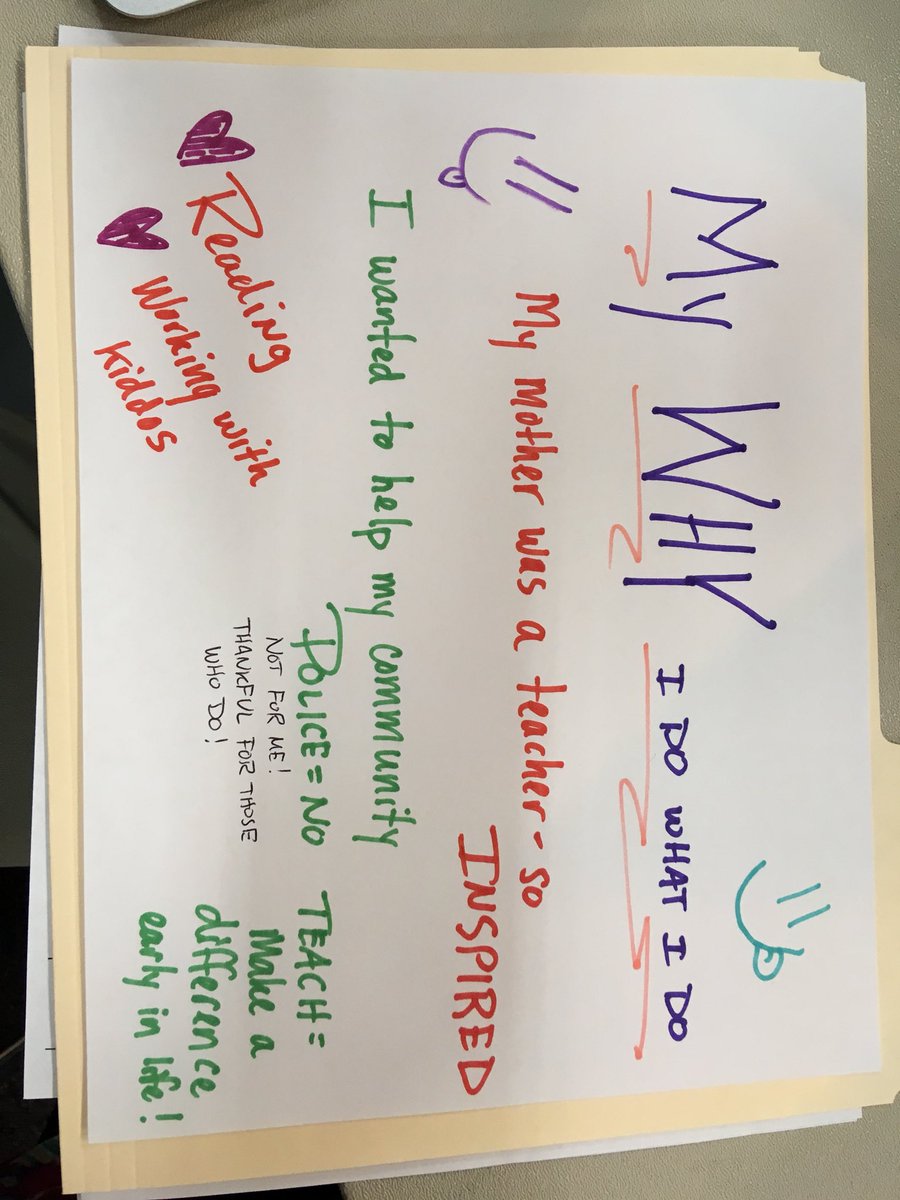 My WHY I DO WHAT I DO
My mother was a teacher - so
INSPIRED
I wanted to help my community
POLICE = NO
NOT FOR ME!
THANKFUL FOR THOSE
WHO DO!
TEACH =
Make a
difference
early in life!
Reading
Working with
Kiddos